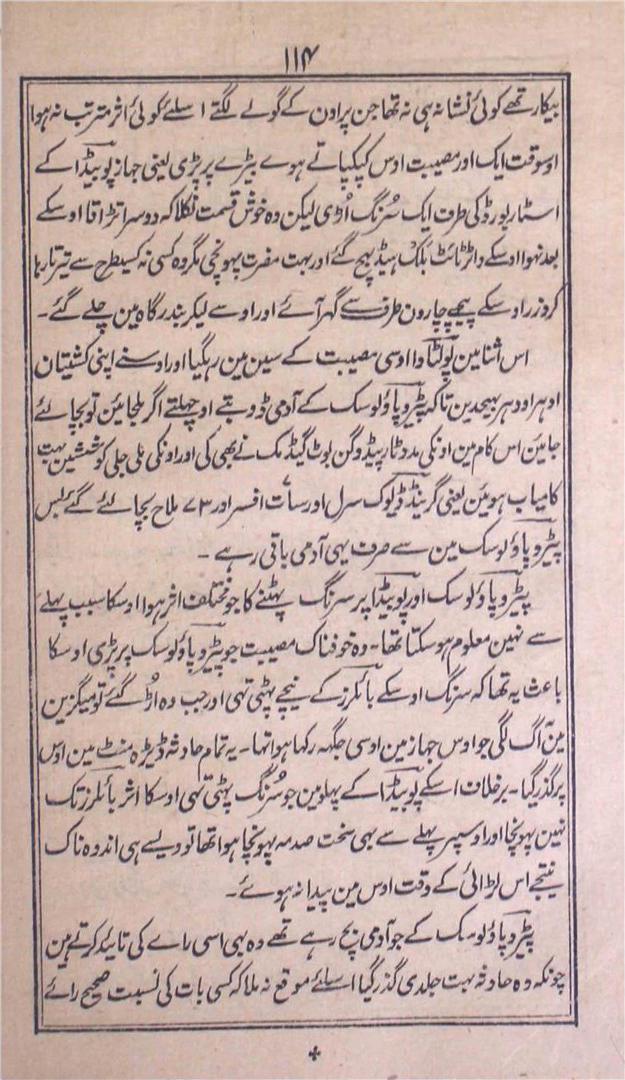 ۱۱۴
بیکار تھے کوئی نشانہ ہی نہ تھا جن پر اون کے گولے لگتے اسلئے کوئی اثر مترتب نہ ہوا
اوسوقت ایک اور مصیبت اوس کپکپاتے ہوے بیڑے پر پڑی یعنی جہاز پوبیڈا کے
اسٹاربورڈ کی طرف ایک سرنگ اُڑی لیکن وہ خوش قسمت نکلا کہ دوسرا تڑاقا اوسکے
بعد نہوا اوسکے واٹرٹائٹ بلک ہیڈ پہچ گئے اور بہت مضرت پہونچی مگر وہ کسی نہ کسیطرح سے تیرتا رہا
کروزر اوسکے پیچھے چارون طرف سے گہر آئے اور اوسے لیکر بندرگاہ مین چلے گئے۔
اس اثنا مین پولٹاوا اوسی مصیبت کے سین مین رہگیا اور اوسنے اپنی کشتیان
اوہر اودہر بہیجدین تاکہ پٹروپاؤلوسک کے آدمی ڈوبتے اوچہلتے اگر ملجائین تو بچا لئے
جاین اس کام مین اونکی مدد ٹارپیڈو گن بوٹ گیڈمک نے بھی کی اور اونکی ملی جلی کوششین بہت
کامیاب ہوئین یعنی گرینڈ ڈیوک سرل اور سات افسر اور ۷۳ ملاح بچا لئے گئے بس
پٹروپاؤلوسک مین سے صرف یہی آدمی باقی رہے ۔
پٹروپاؤلوسک اور پوبیڈا پر سرنگ پہٹنے کا جو مختلف اثر ہوا اوسکا سبب پہلے
سے نہین معلوم ہو سکتا تھا۔ وہ خوفناک مصیبت جو پٹروپاؤلوسک پر پڑی اوسکا
باعث یہ تھا کہ سرنگ اوسکے بائلرز کے نیچے پہٹی تہی اور جب وہ اُڑ گئے تو میگزین
مین آگ لگی جو اوس جہاز مین اوسی جگہہ رکہا ہوا تہا۔ یہ تمام حادثہ ڈیڑہ منٹ مین اوس
پر گذر گیا۔ برخلاف اسکے پوبیڈا کے پہلو مین جو سُرنگ پہٹی تہی اوسکا اثر بائلرز تک
نہین پہونچا اور اوسپر پہلے سے بہی سخت صدمہ پہونچا ہوا تھا تو ویسے ہی اندوہ ناک
نتیجے اس لڑائی کے وقت اوس مین پیدا نہ ہوئے۔
پٹروپاؤلوسک کے جو آدمی بچ رہے تھے وہ بہی اسی راے کی تائید کرتے ہین
چونکہ وہ حادثہ بہت جلدی گذر گیا اسلئے موقع نہ ملا کہ کسی بات کی نسبت صحیح رائے